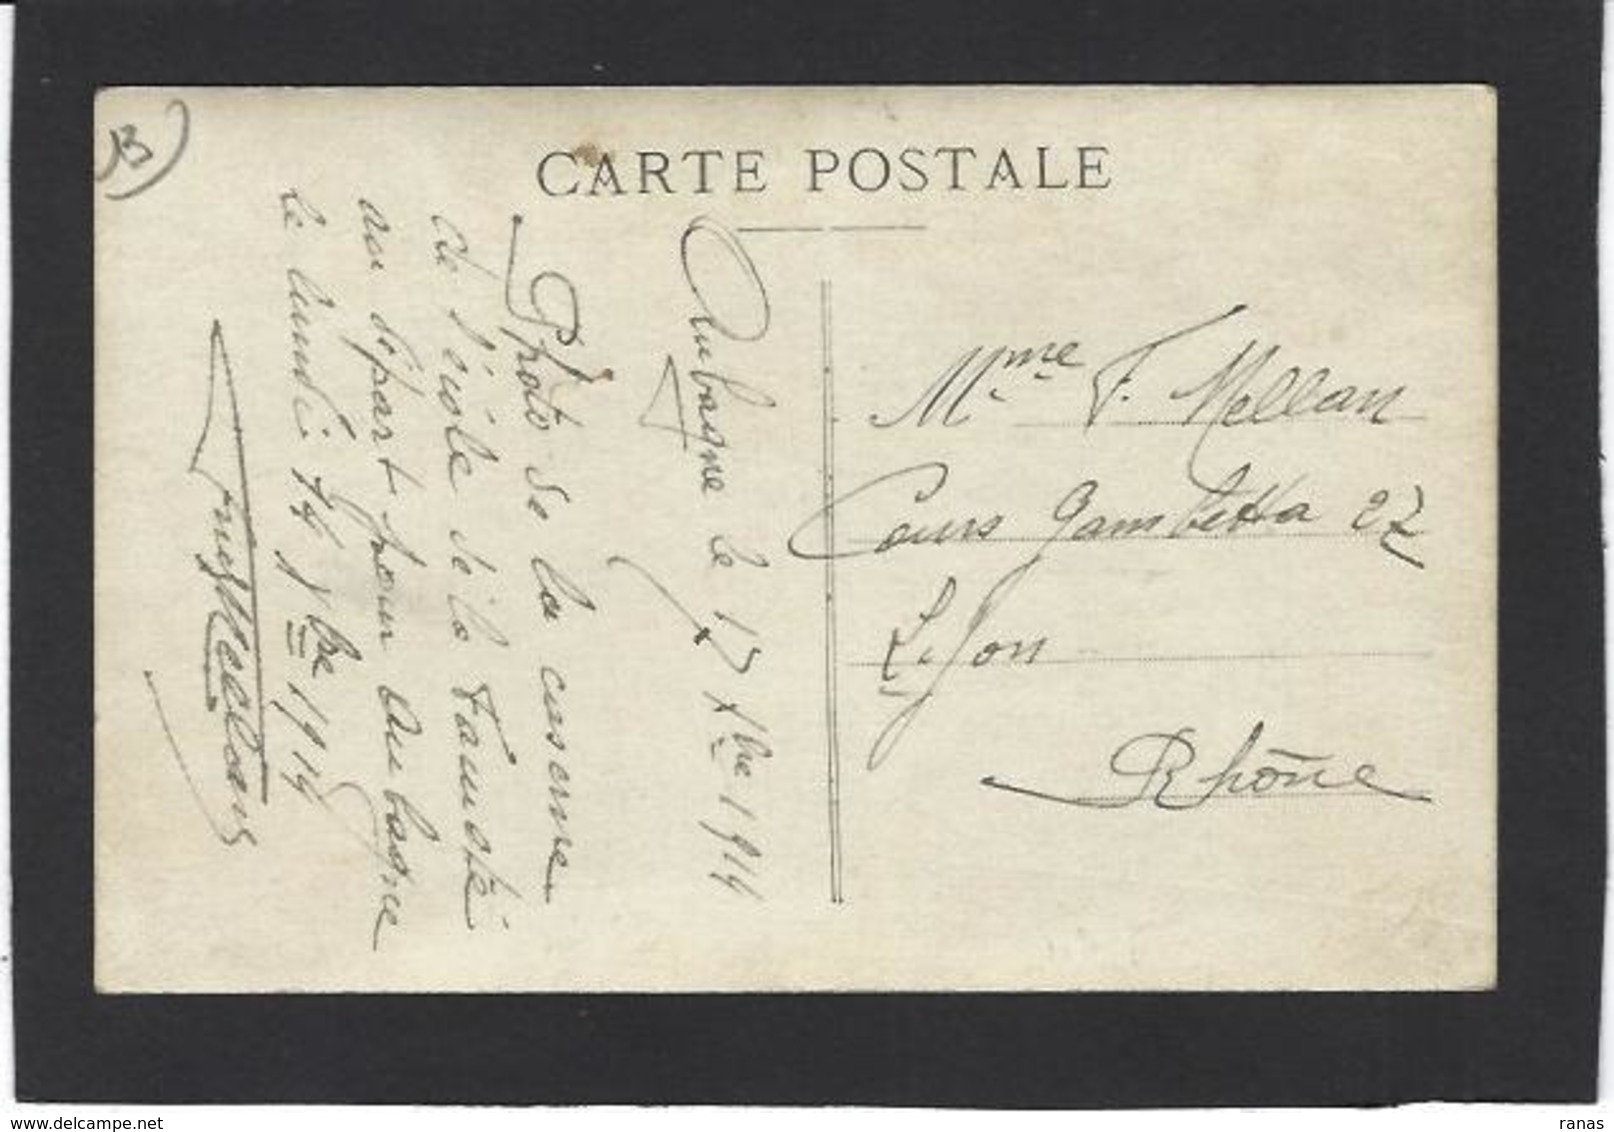 13
CARTE POSTALE
Aubagne le 17 Xbre 1914
Photo de la caserne
de l'école de la Timone
au départ pour Aubagne
le lundi 14 Xbre 1914
Mellan
Mme F. Mellan
Cours Gambetta 27
Lyon
Rhône
www.delcampe.net
ranas